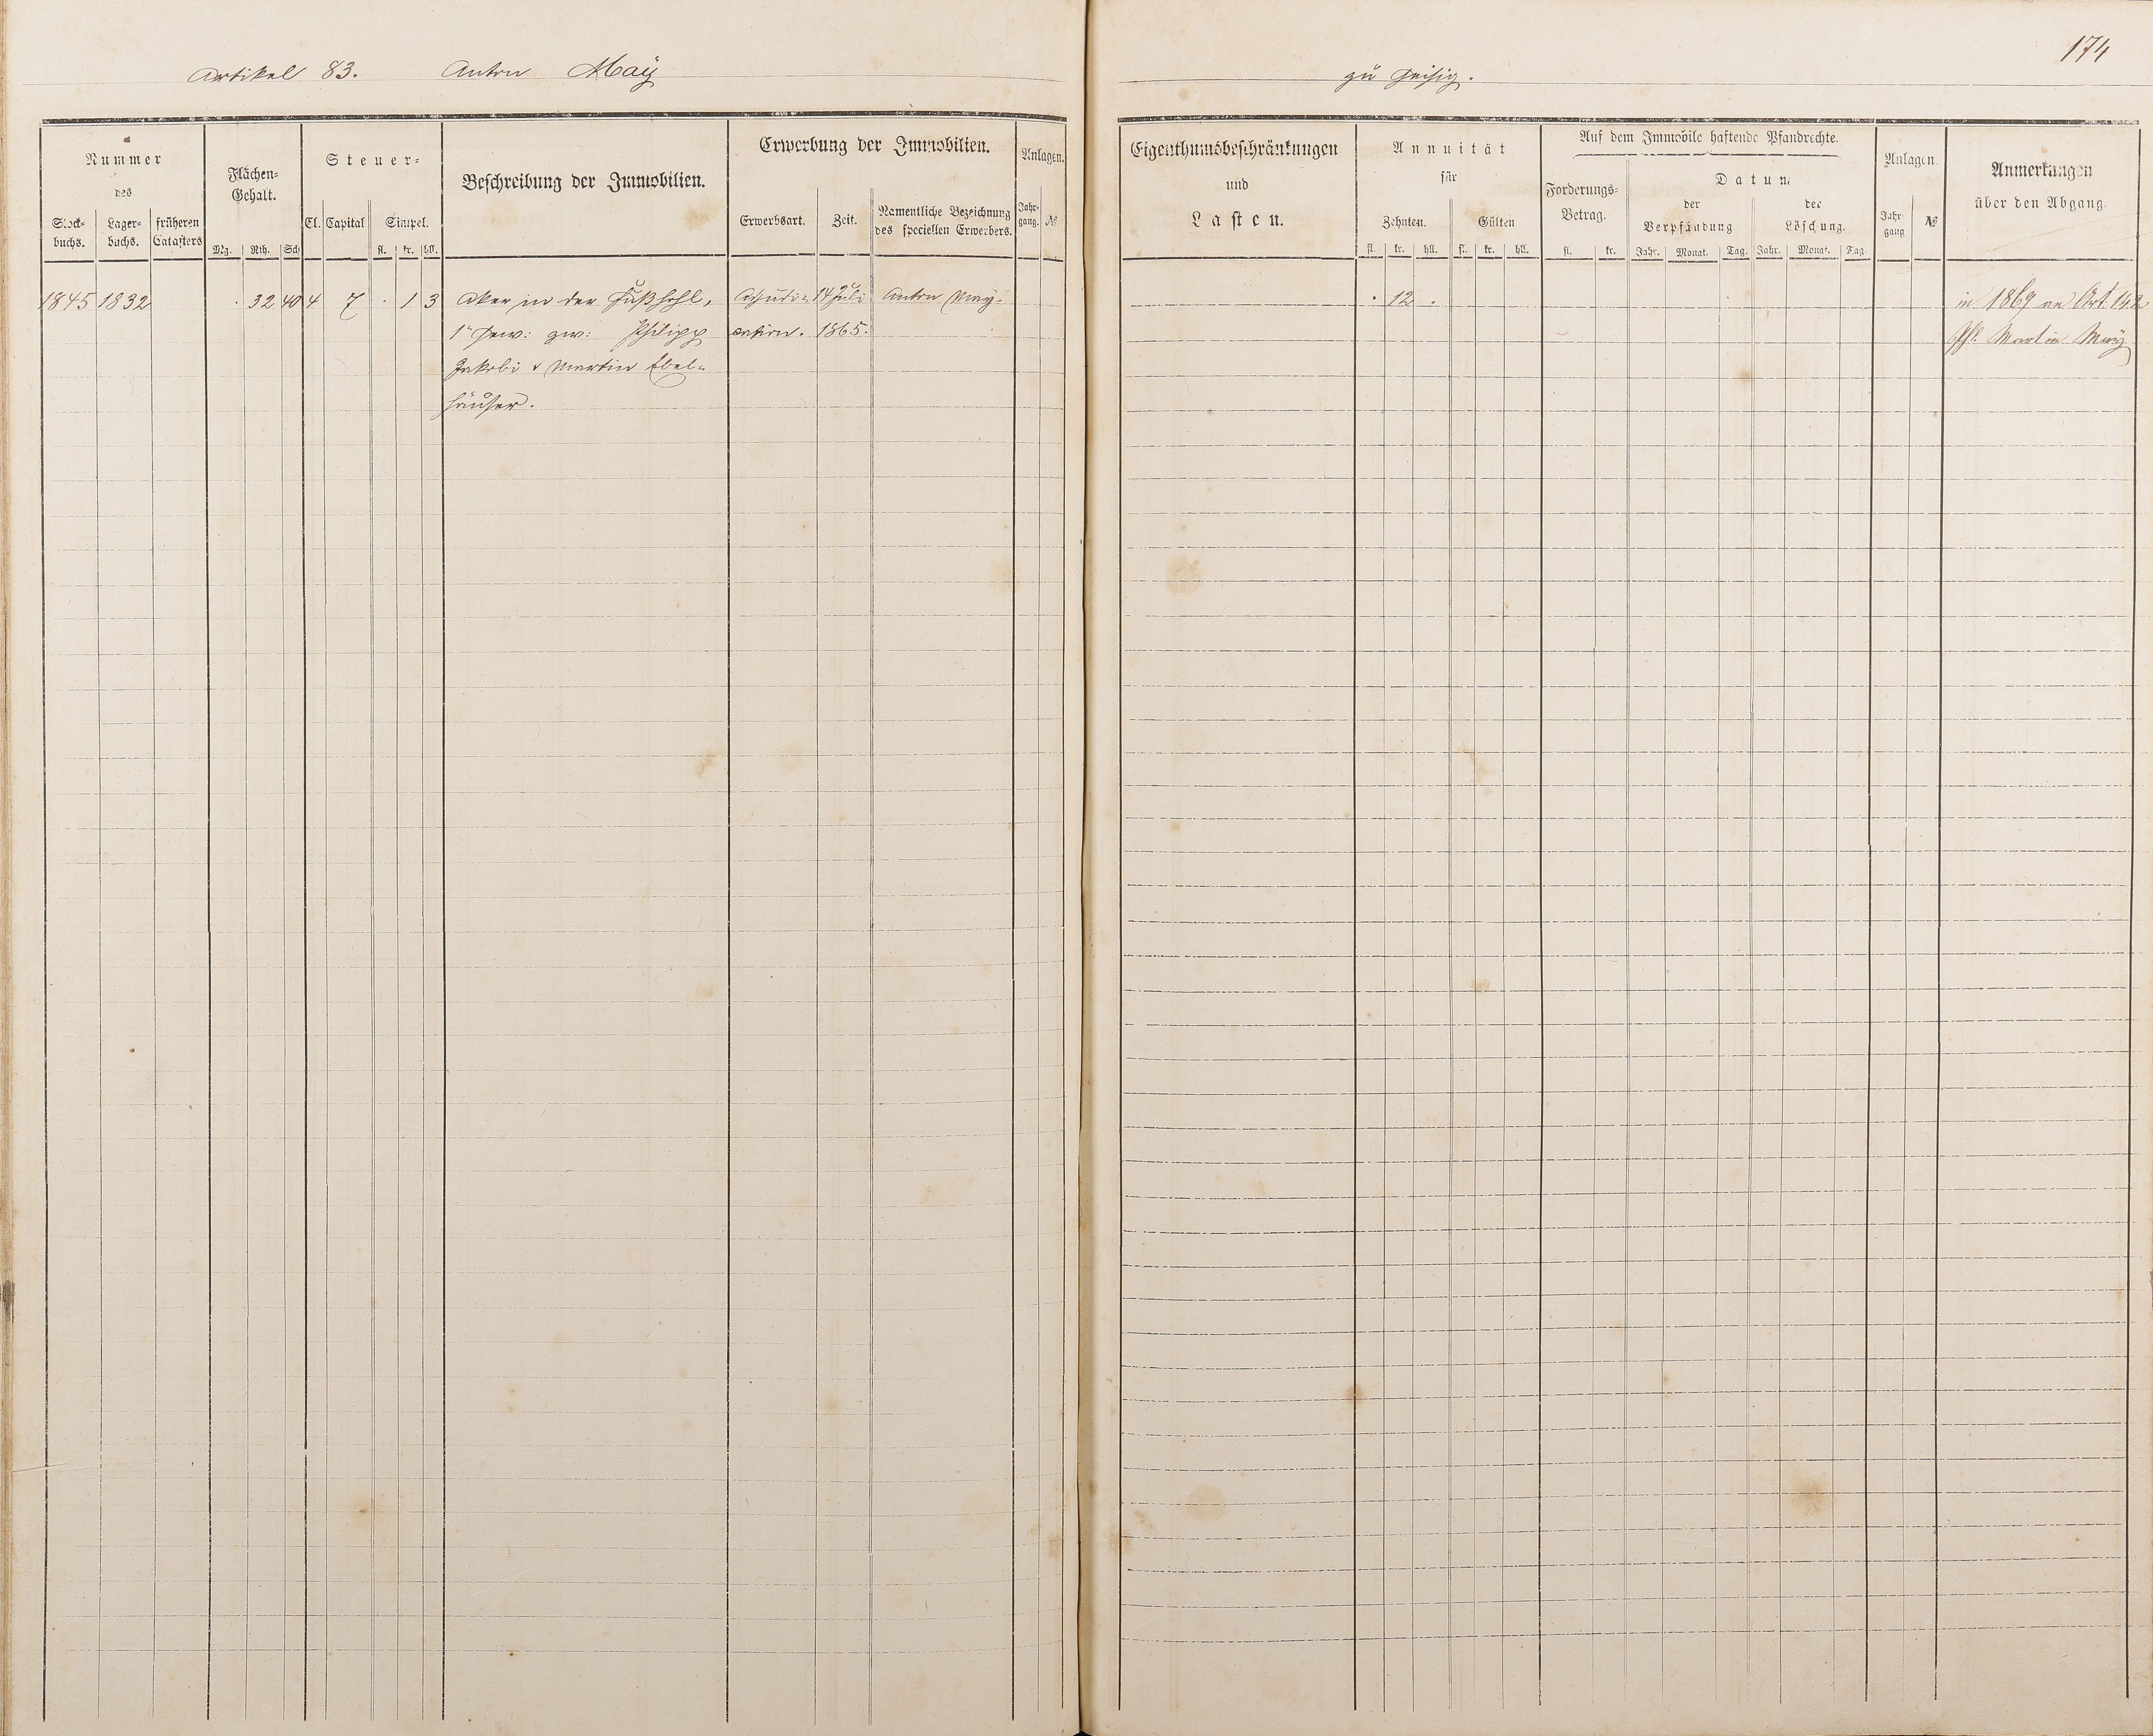 174
Artikel 83. Anton Maÿ zu Geisig.
Nummer des
Stock-buchs. Lager-buchs. früheren Catasters
Flächen-Gehalt.
Mg. Rth. Sch
Steuer-
Cl. Capital Simpel.
fl. kr. hll.
Beschreibung der Immobilien.
Erwerbung der Immobilien.
Erwerbsart. Zeit. Namentliche Bezeichnung des speciellen Erwerbers.
Anlagen.
Jahr-gang. №
Eigenthumsbeschränkungen
und
Lasten.
Annuität
für
Zehnten. Gülten
fl. kr. hll. fl. kr. hll.
Auf dem Immobile haftende Pfandrechte.
Forderungs-Betrag.
fl. kr.
Datum
der Verpfändung der Löschung.
Jahr. Monat. Tag. Jahr. Monat. Tag.
Anlagen
Jahr gang №
Anmerkungen
über den Abgang.
1845 1832 . 32 40 4 7 . 1 3 Aker in der Fußhohl, Adjudi= 14 Juli Anton May. . 12 . in 1869 an Art. 142
1" Gew: zw: Philipp cation. 1865. Phl. Martin Maÿ
Jakobi & Martin Ebel=
häuser.